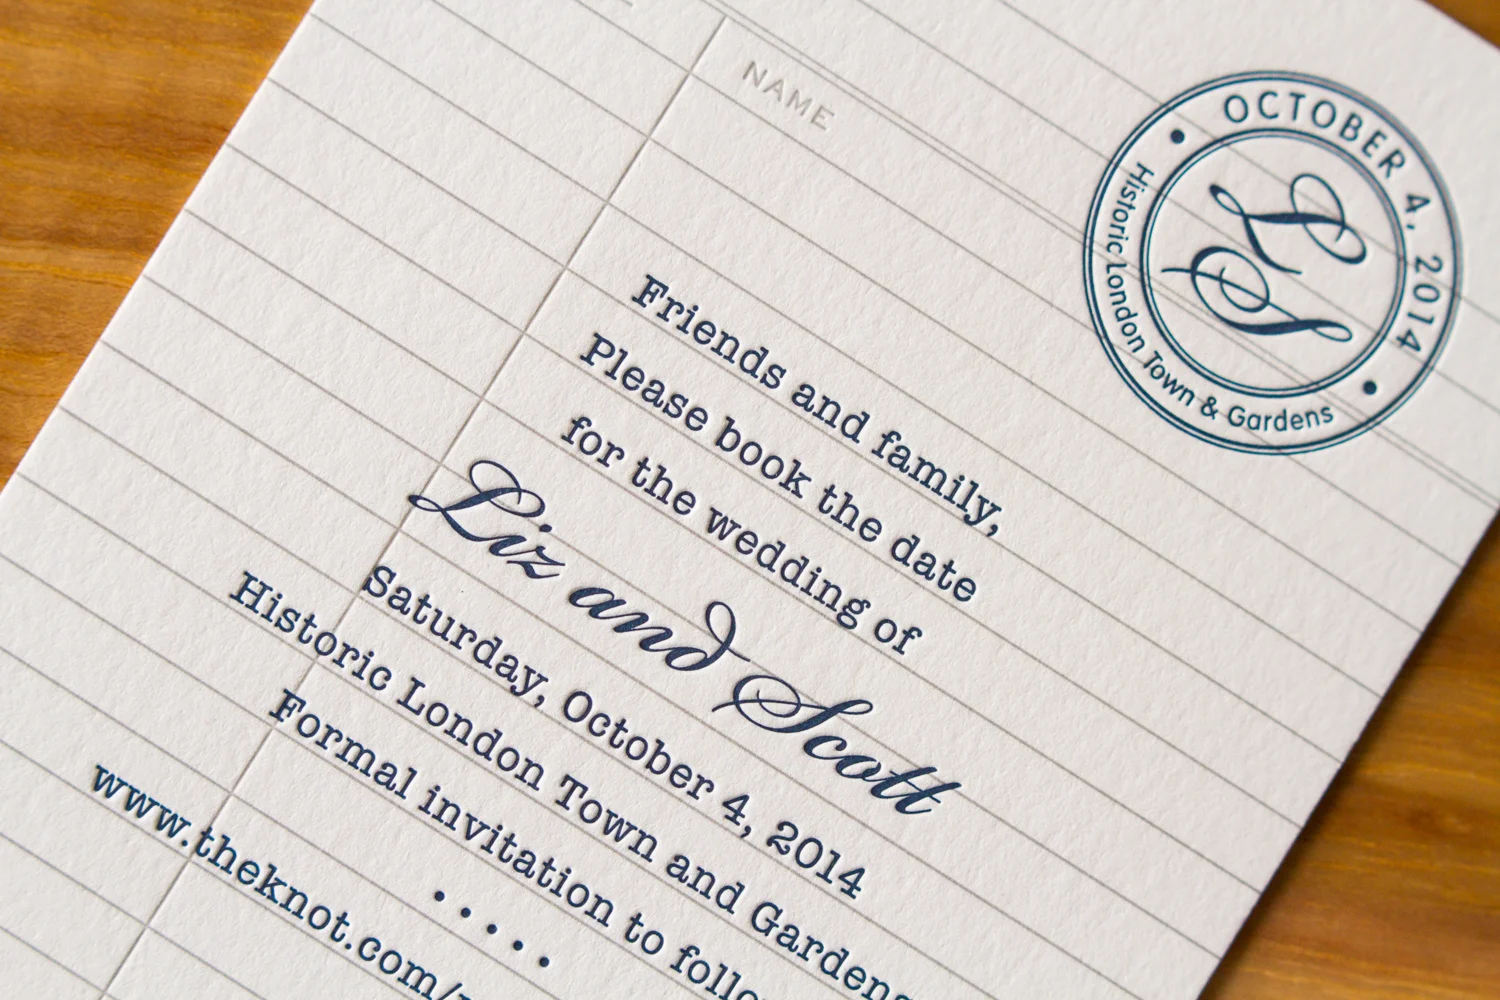 NAME
OCTOBER 4, 2014
Historic London Town & Gardens
L
S
Friends and family,
Please book the date
for the wedding of
Liz and Scott
Saturday, October 4, 2014
Historic London Town and Gardens
Formal invitation to
www.theknot.com/